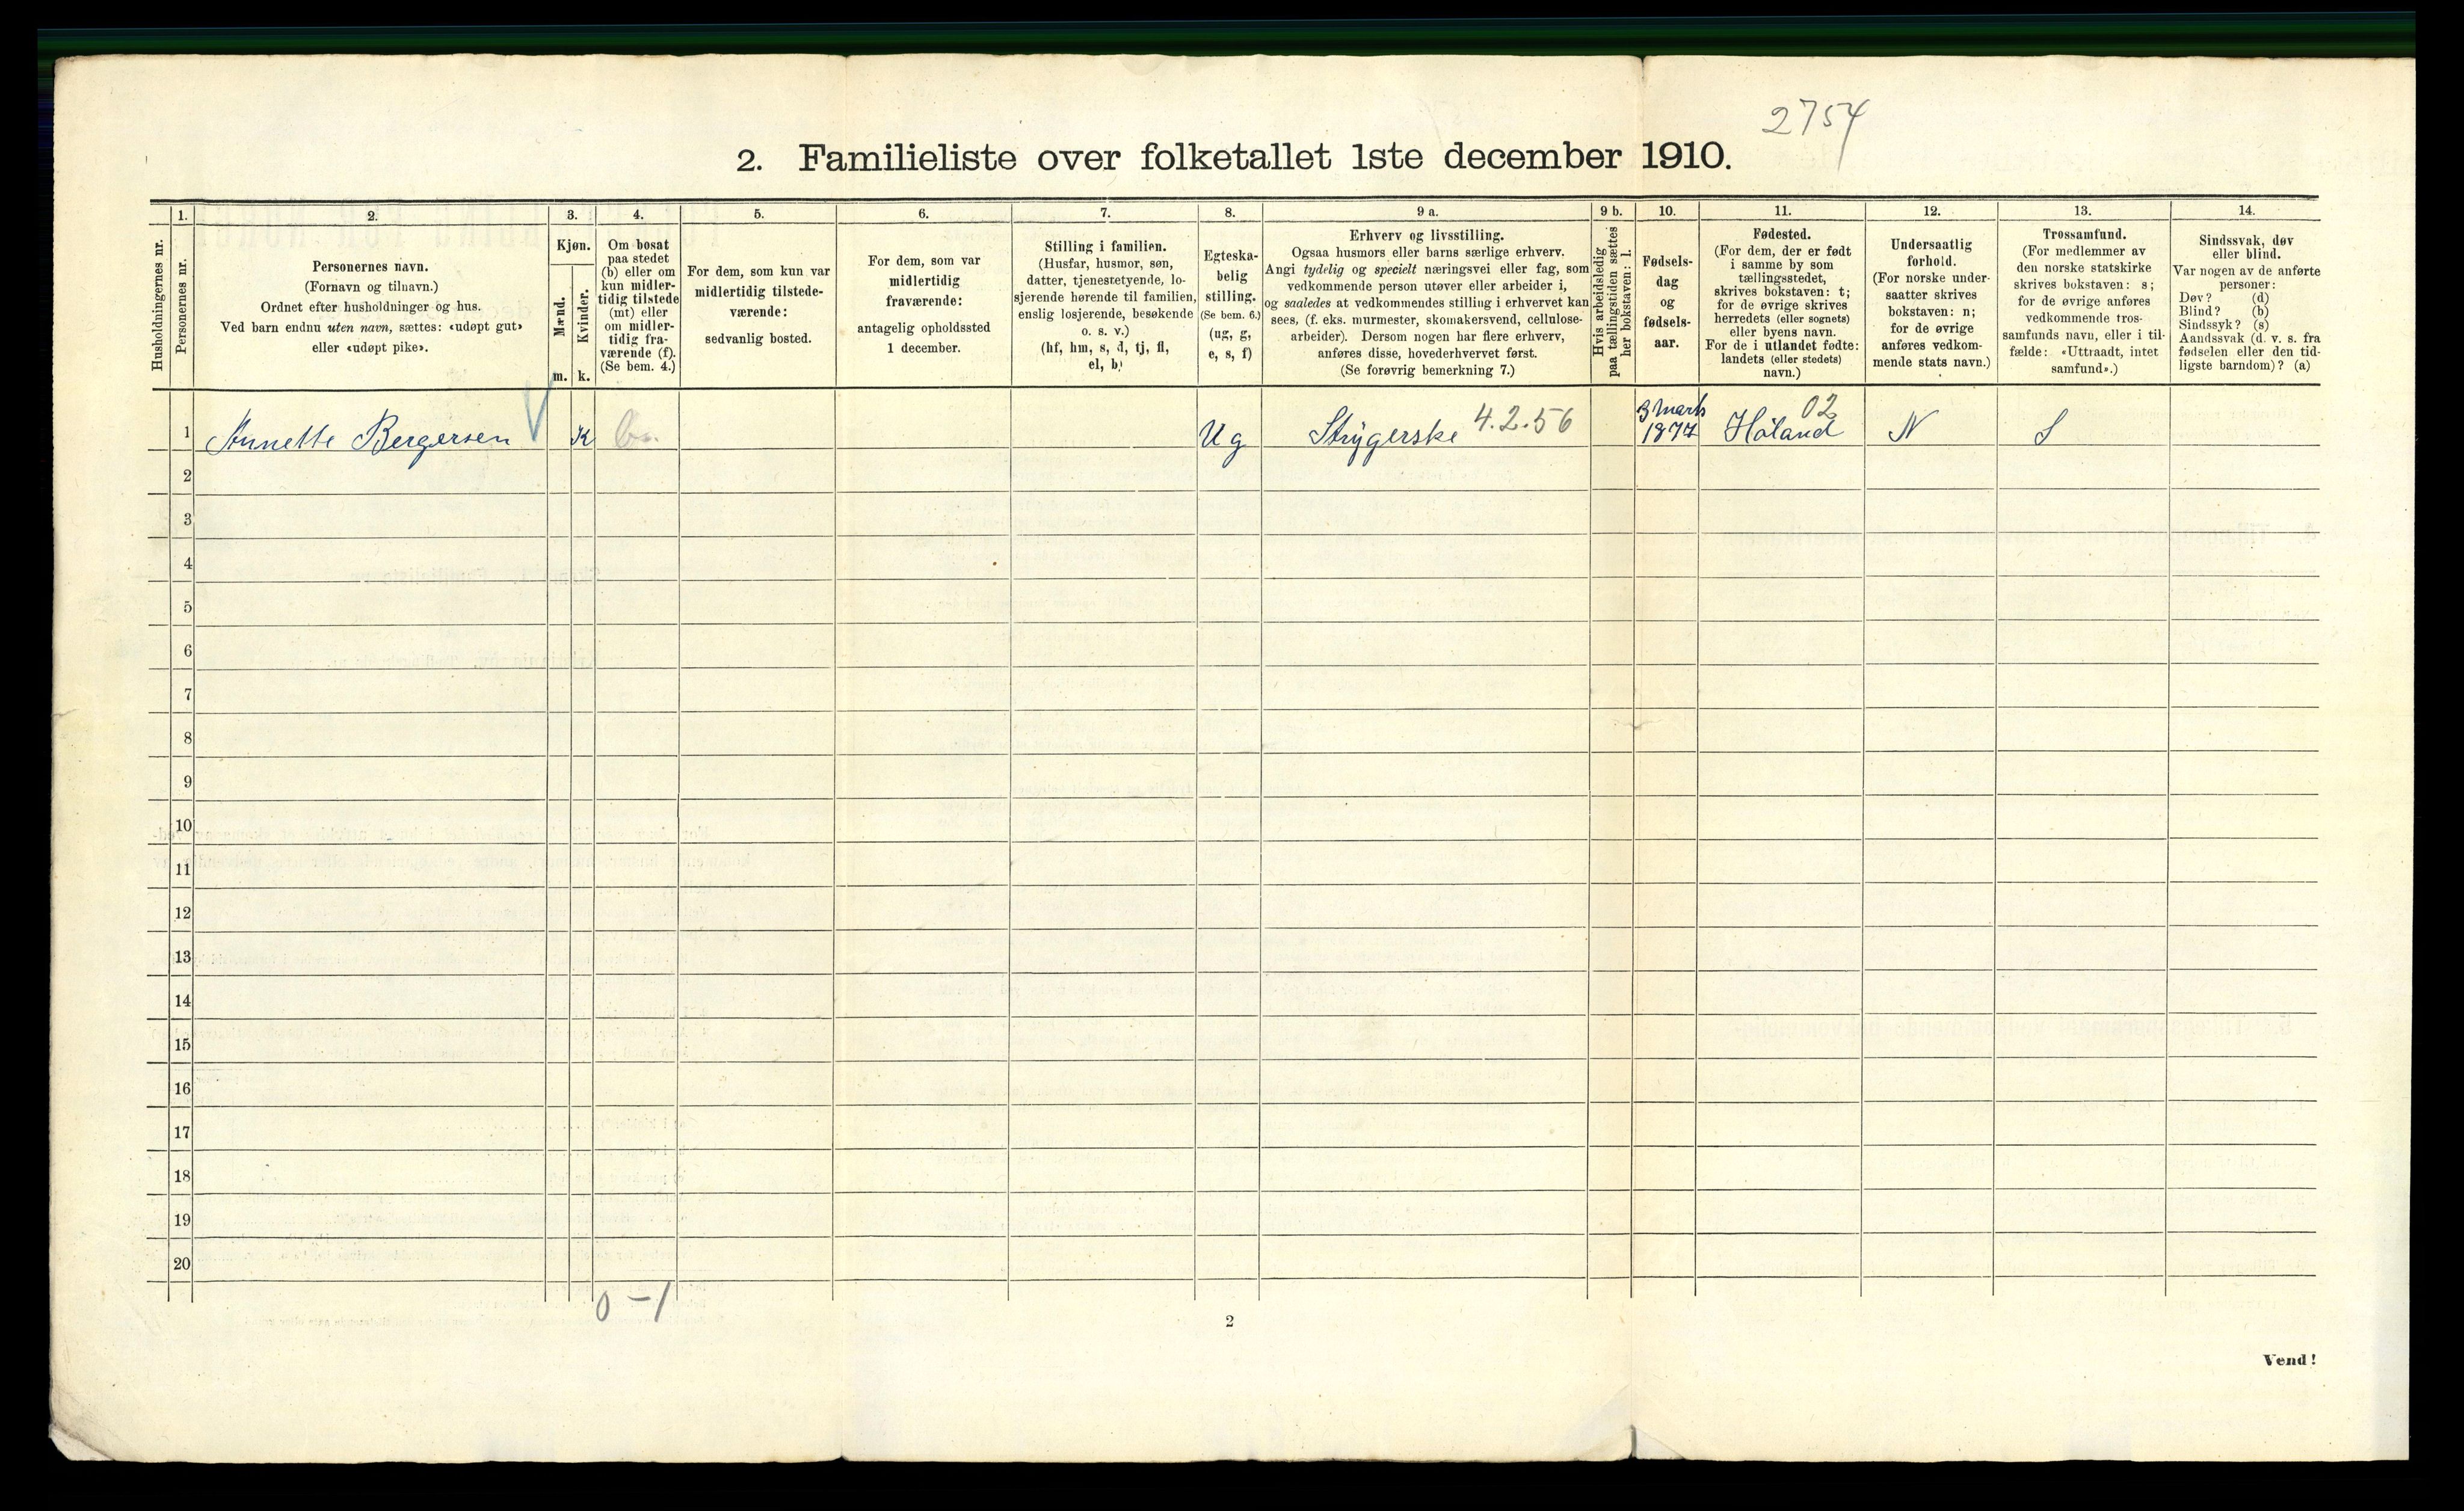 2754
2. Familieliste over folketallet 1ste december 1910.
Husholdningernes nr.
1.
Personernes nr.
2.
Personernes navn.
(Fornavn og tilnavn.)
Ordnet efter husholdninger og hus.
Ved barn endnu uten navn, sættes: «udøpt gut»
eller «udøpt pike».
3.
Kjøn.
Mænd.
Kvinder.
m.
k.
4.
Om bosat
paa stedet
(b) eller om
kun midler-
tidig tilstede
(mt) eller
om midler-
tidig fra-
værende (f).
(Se bem. 4.)
5.
For dem, som kun var
midlertidig tilstede-
værende:
sedvanlig bosted.
6.
For dem, som var
midlertidig
fraværende:
antagelig opholdssted
1 december.
7.
Stilling i familien.
(Husfar, husmor, søn,
datter, tjenestetyende, lo-
sjerende hørende til familien,
enslig losjerende, besøkende
o. s. v.)
(hf, hm, s, d, tj, fl,
el, b)
8.
Egteska-
belig
stilling.
(Se bem. 6.)
(ug, g,
e, s, f)
9 a.
Erhverv og livsstilling.
Ogsaa husmors eller barns særlige erhverv.
Angi tydelig og specielt næringsvei eller fag, som
vedkommende person utøver eller arbeider i,
og saaledes at vedkommendes stilling i erhvervet kan
sees, (f. eks. murmester, skomakersvend, cellulose-
arbeider). Dersom nogen har flere erhverv,
anføres disse, hovederhvervet først.
(Se forøvrig bemerkning 7.)
9 b.
Hvis arbeidsledig
paa tællingstiden sættes
her bokstaven: l.
10.
Fødsels-
dag
og
fødsels-
aar.
11.
Fødested.
(For dem, der er født
i samme by som
tællingsstedet,
skrives bokstaven: t;
for de øvrige skrives
herredets (eller sognets)
eller byens navn.
For de i utlandet fødte:
landets (eller stedets)
navn.)
12.
Undersaatlig
forhold.
(For norske under-
saatter skrives
bokstaven: n;
for de øvrige
anføres vedkom-
mende stats navn.)
13.
Trossamfund.
(For medlemmer av
den norske statskirke
skrives bokstaven: s;
for de øvrige anføres
vedkommende tros-
samfunds navn, eller i til-
fælde: «Uttraadt, intet
samfund».)
14.
Sindssvak, døv
eller blind.
Var nogen av de anførte
personer:
Døv? (d)
Blind? (b)
Sindssyk? (s)
Aandssvak (d. v. s. fra
fødselen eller den tid-
ligste barndom)? (a)
1 Annette Bergersen K b. Ug Strygerske 4.2.56 3 Marts 1877 Høland 02 N S
2
3
4
5
6
7
8
9
10
11
12
13
14
15
16
17
18
19
20
0 – 1
2
Vend!